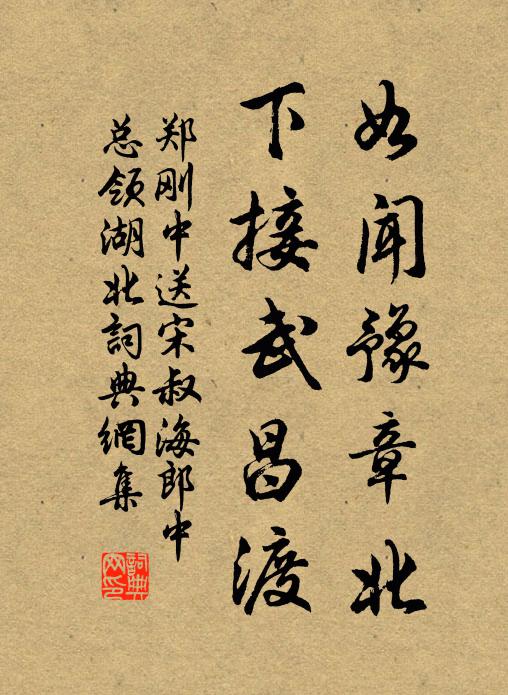 如闻豫章北
下接武昌渡
郑刚中送宋叔海郎中
总领湖北詞典網集
詞典网印